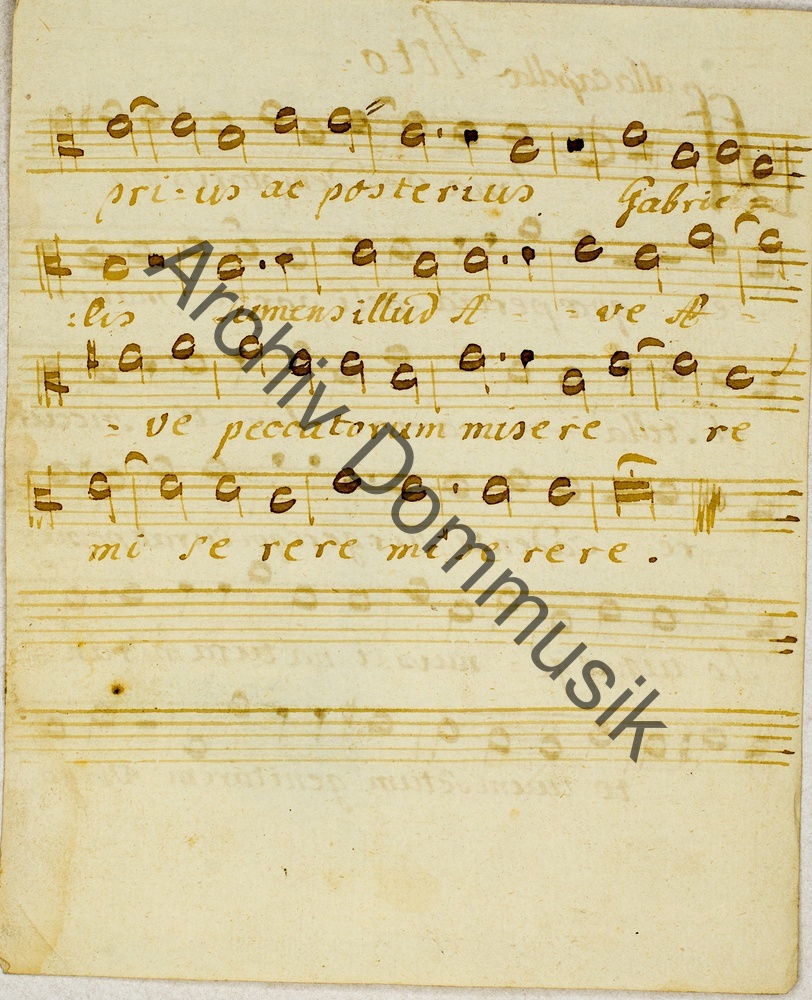 pri-us ac posterius Gabrie=
:lis sumens illud A - - ve A -
- ve peccatorum misere re
mi se rere mise rere.
Archiv Dommusik